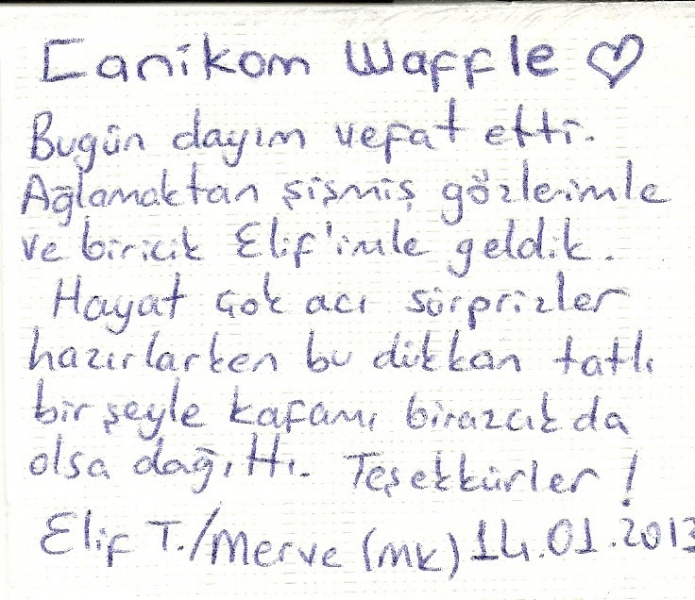 Canikom Waffle ♡
Bugün dayım vefat etti.
Ağlamaktan şişmiş gözlerimle
ve biricik Elif'imle geldik.
Hayat çok acı sürprizler
hazırlarken bu dükkan tatlı
bir şeyle kafamı birazcık da
olsa dağıttı. Teşekkürler!
Elif T./Merve (MK) 14.01.2013